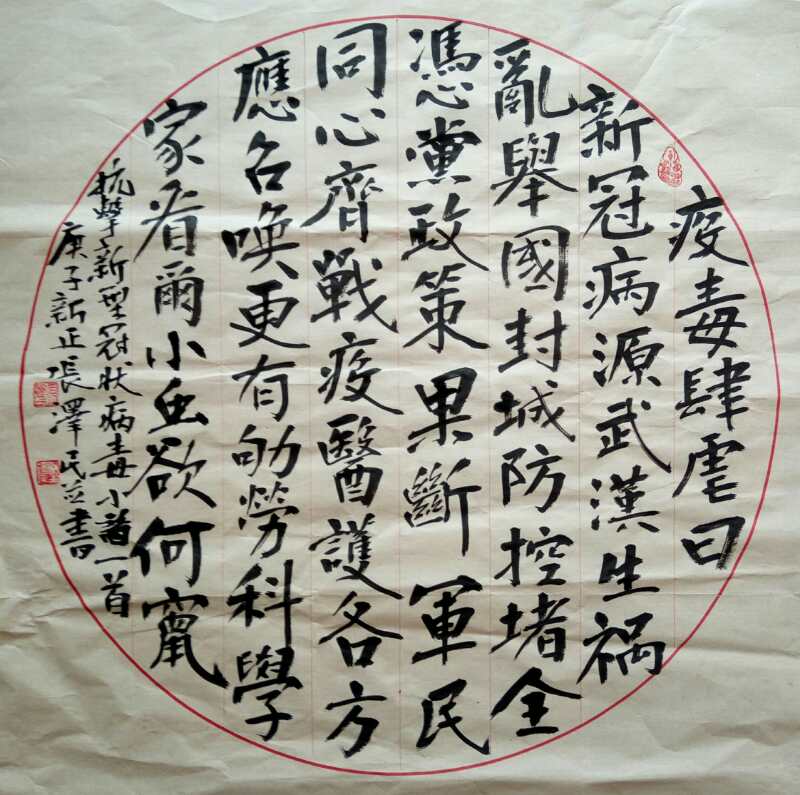 疫毒肆虐日
新冠病源武漢生祸
亂舉國封城防控堵全
憑黨政策果斷軍民
同心齊戰疫醫護各方
應召唤更有劬勞科學
家看爾小虫欲何竄
抗擊新型冠狀病毒小諸一首
庚子新正張澤民並書